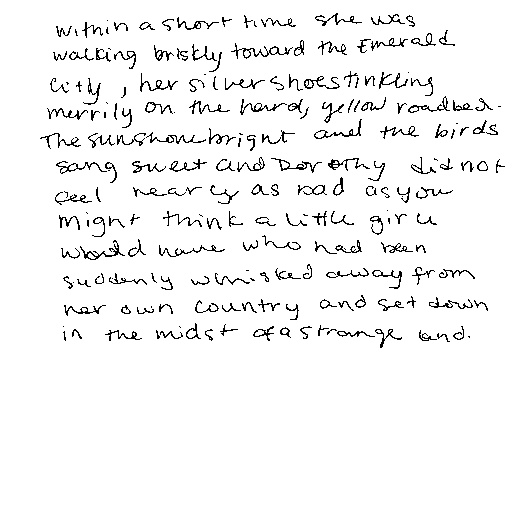 within a short time she was
walking briskly toward the Emerald
City, her silver shoes tinkling
merrily on the hard, yellow roadbed.
The sun shone bright and the birds
sang sweet and Dorothy did not
feel nearly as bad as you
might think a little girl
would have who had been
suddenly whisked away from
her own country and set down
in the midst of a strange land.